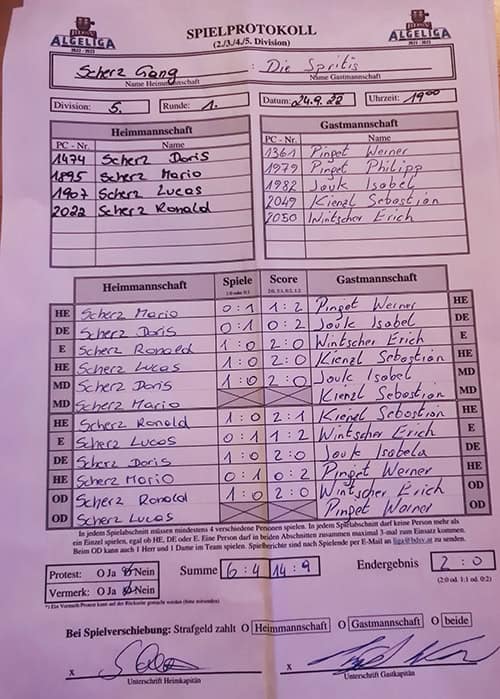 ALGELIGA SPIELPROTOKOLL ALGELIGA
2022 - 2023 (2./3./4./5. Division) 2022 - 2023
Scherz Gang : Die Spritis
Name Heimmannschaft Name Gastmannschaft
Division: 5. Runde: 1. Datum: 24.9.22 Uhrzeit: 19 00
Heimmannschaft Gastmannschaft
PC - Nr. Name PC - Nr. Name
1474 Scherz Doris 1361 Pinget Werner
1895 Scherz Mario 1979 Pinget Philipp
1907 Scherz Lucas 1982 Jouk Isabel
2022 Scherz Ronald 2049 Kienzl Sebastian
2050 Wintscher Erich
Heimmannschaft Spiele Score Gastmannschaft
1:0 oder 0:1 2:0, 2:1, 0:2, 1:2
HE Scherz Mario 0:1 1:2 Pinget Werner HE
DE Scherz Doris 0:1 0:2 Jouk Isabel DE
E Scherz Ronald 1:0 2:0 Wintscher Erich E
HE Scherz Lucas 1:0 2:0 Kienzl Sebastian HE
MD Scherz Doris 1:0 2:0 Jouk Isabel MD
MD Scherz Mario Kienzl Sebastian MD
HE Scherz Ronald 1:0 2:1 Kienzl Sebastian HE
E Scherz Lucas 0:1 1:2 Wintscher Erich E
DE Scherz Doris 1:0 2:0 Jouk Isabela DE
HE Scherz Mario 0:1 0:2 Pinget Werner HE
OD Scherz Ronald 1:0 2:0 Wintscher Erich OD
OD Scherz Lucas Pinget Werner OD
In jedem Spielabschnitt müssen mindestens 4 verschiedene Personen spielen. In jedem Spielabschnitt darf keine Person mehr als
ein Einzel spielen, egal ob HE, DE oder E. Eine Person darf in beiden Abschnitten zusammen maximal 3-mal zum Einsatz kommen.
Beim OD kann auch 1 Herr und 1 Dame im Team spielen. Spielberichte sind nach Spielende per E-Mail an liga@bdsv.at zu senden.
Protest: O Ja O Nein Summe 6:4 14:9 Endergebnis 2:0
Vermerk: O Ja O Nein (2:0 od. 1:1 od. 0:2)
*) Ein Vermerk/Protest kann auf der Rückseite gemacht werden (bitte ankreuzen)
Bei Spielverschiebung: Strafgeld zahlt O Heimmannschaft O Gastmannschaft O beide
X X
Unterschrift Heimkapitän Unterschrift Gastkapitän